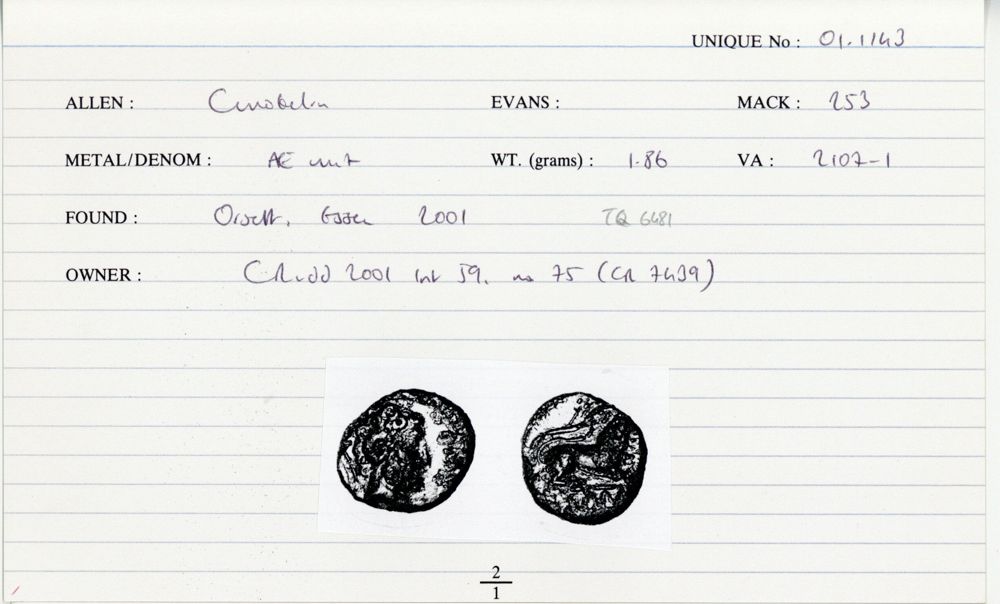 UNIQUE No : 01.1143
ALLEN : Cunobelin EVANS : MACK : 253
METAL/DENOM : AE unit WT. (grams) : 1.86 VA : 2107-1
FOUND : Orsett, Essex 2001 TQ 6481
OWNER : C Rudd 2001 list 59. no 75 (CR 7439)
2
1